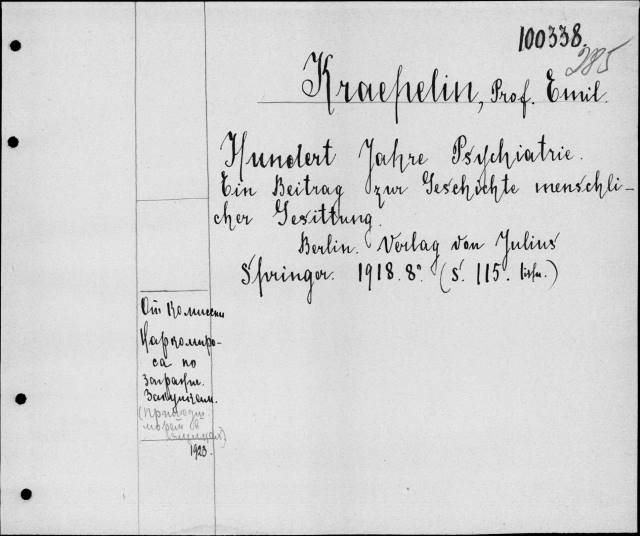 100338.
285
Kraepelin, Prof. Emil.
Hundert Jahre Psychiatrie.
Ein Beitrag zur Geschichte menschli-
cher Gesittung.
Berlin. Verlag von Julius
Springer. 1918. 8°. (S. 115.
От Комиссии
Наркомпро-
са по
Загранич.
Закупкам.
1923.